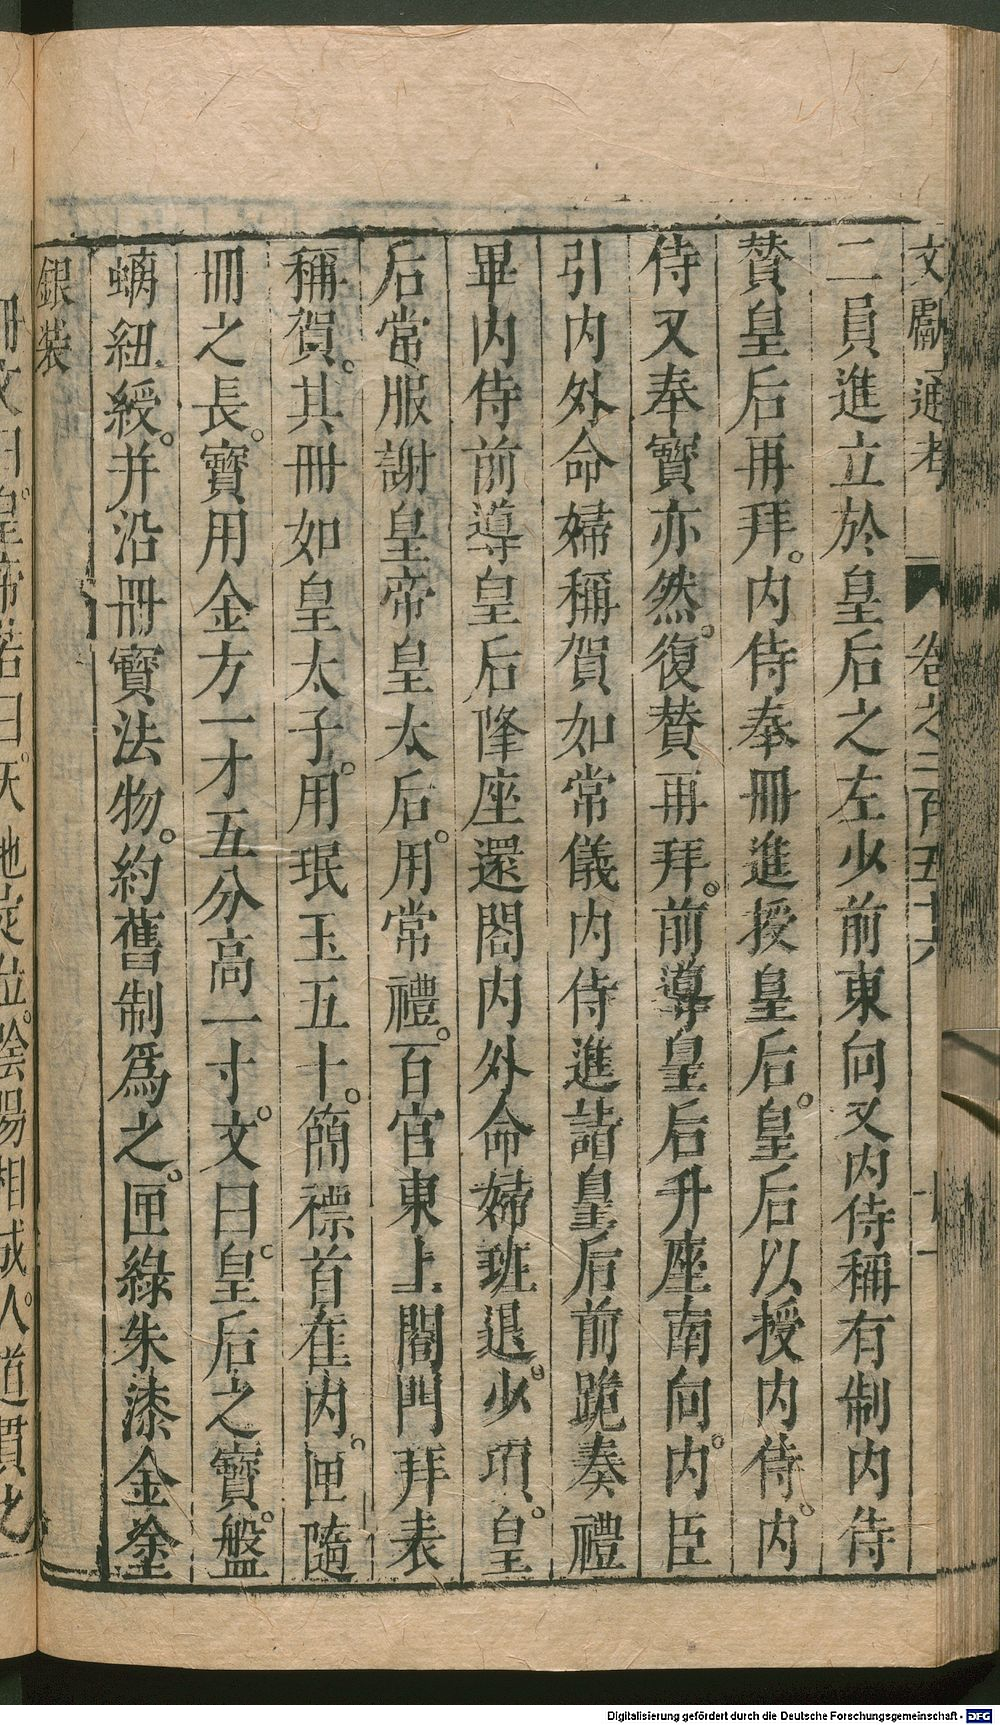 文獻通考 卷之二百五十六
二員進立於皇后之左少前東向又内侍稱有制内侍
贊皇后再拜。内侍奉冊進授皇后。皇后以授内侍。内
侍又奉寳亦然。復贊再拜。前導皇后升座南向。内臣
引内外命婦稱賀如常儀内侍進詣皇后前跪奏禮
畢内侍前導皇后降座還閤内外命婦班退。少頃。皇
后常服謝皇帝皇太后。用常禮。百官東上閤門拜表
稱賀。其冊如皇太子。用珉玉五十。簡褾首在内。匣隨
冊之長。寳用金方一才五分高一寸。文曰。皇后之寳。盤
螭紐綬。并沿冊寳法物。約舊制爲之。匣綠朱漆金塗
銀裝
冊文曰。皇帝若曰。天地定位。陰陽相成。人道貫化
Digitalisierung gefördert durch die Deutsche Forschungsgemeinschaft - DFG